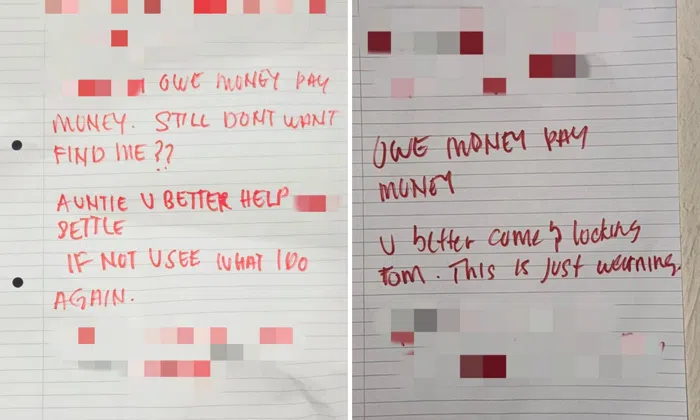 OWE MONEY PAY
MONEY. STILL DONT WANT
FIND ME??
AUNTIE U BETTER HELP
SETTLE
IF NOT U SEE WHAT I DO
AGAIN.
OWE MONEY PAY
MONEY
U better come
Tom. This is just warning.